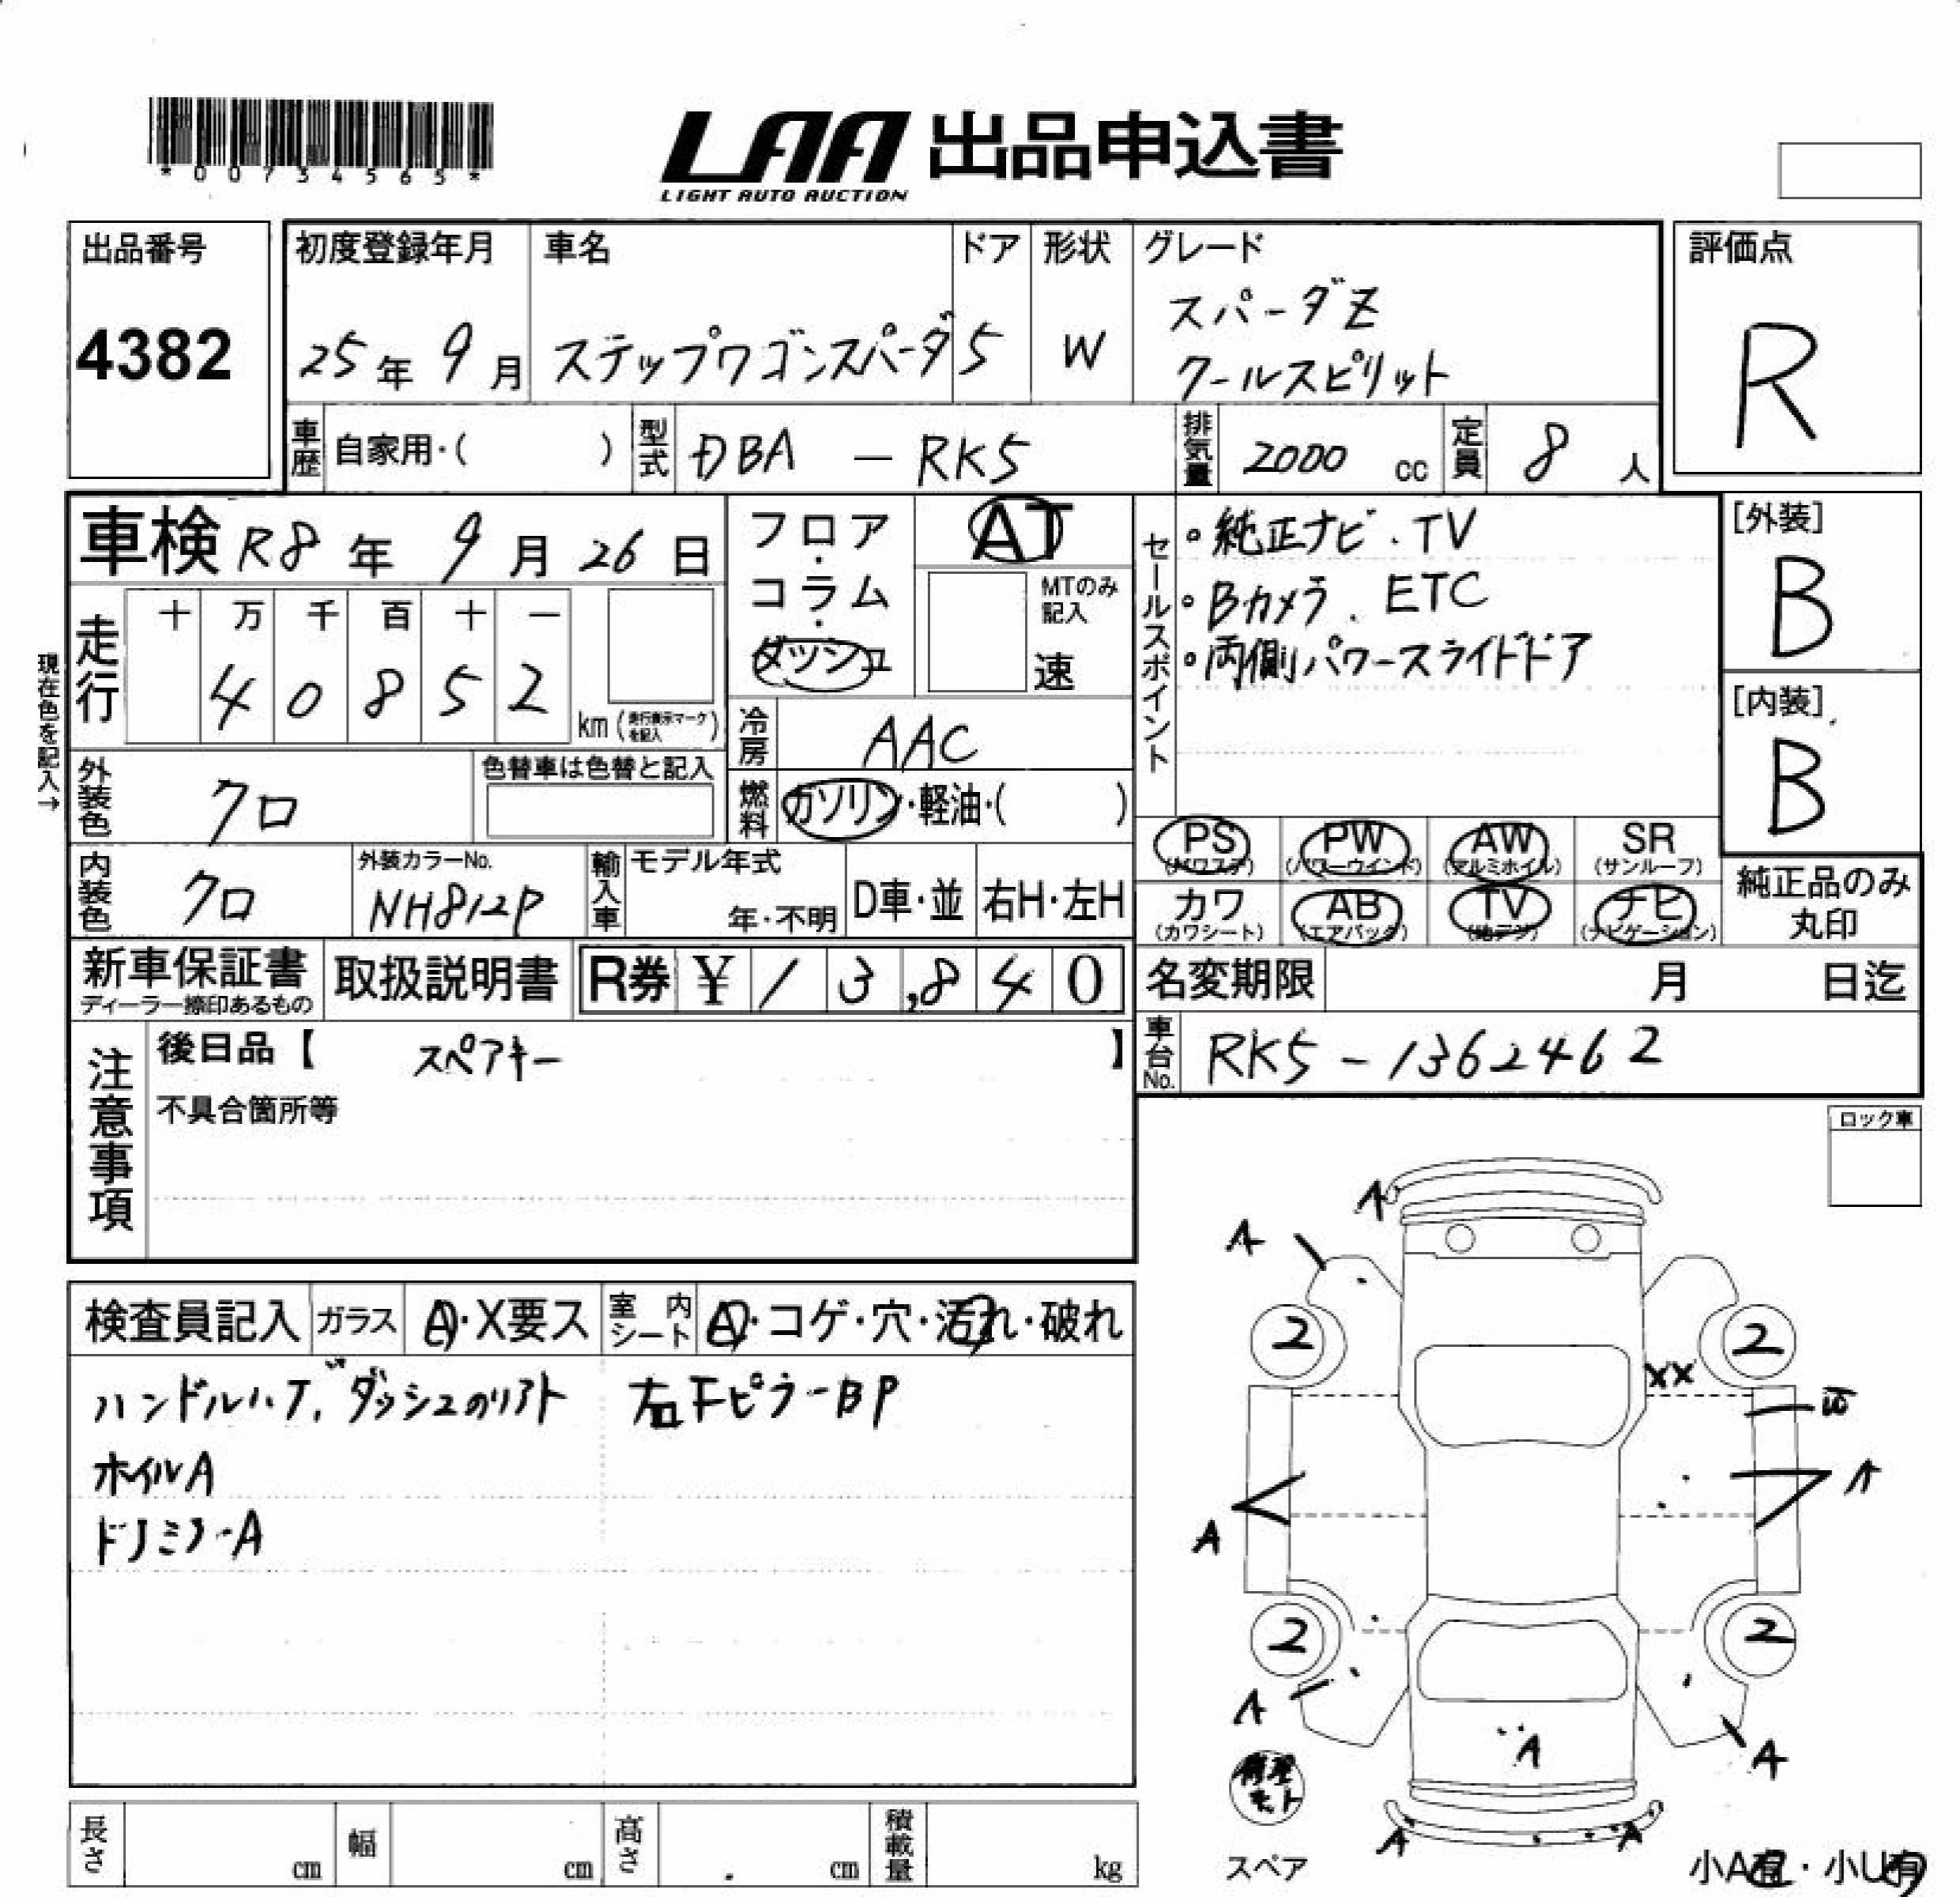 *00734565*
LAA 出品申込書
LIGHT AUTO AUCTION
出品番号
4382
初度登録年月
25年 9月
車名
ステップワゴンスパーダ
ドア
5
形状
W
グレード
スパーダZ
クールスピリット
評価点
R
車歴 自家用・( )
型式 DBA - RK5
排気量 2000 cc
定員 8 人
車検 R8年 9月 26日
走行 十 万 千 百 十 一
4 0 8 5 2
km (走行表示マークを記入)
現在色を記入→
フロア・コラム・ダッシュ
AT
MTのみ記入
速
冷房 AAC
燃料 ガソリン・軽油・( )
セールスポイント
・純正ナビ・TV
・Bカメラ. ETC
・両側パワースライドドア
[外装]
B
[内装]
B
外装色 クロ
色替車は色替と記入
内装色 クロ
外装カラーNo.
NH812P
輸入車 モデル年式
年・不明
D車・並
右H・左H
PS (パワステ)
PW (パワーウインド)
AW (アルミホイル)
SR (サンルーフ)
カワ (カワシート)
AB (エアバック)
TV (地デジ)
ナビ (ナビゲーション)
純正品のみ
丸印
新車保証書
ディーラー捺印あるもの
取扱説明書
R券 ¥ 1 3,8 4 0
名変期限 月 日迄
車台No. RK5-1362462
注意事項
後日品【 スペアキー 】
不具合箇所等
ロック車
検査員記入 ガラス A・X要ス 室内シート A・コゲ・穴・汚れ・破れ
ハンドルハゲ. ダッシュのリアト 右Fピラー BP
ホイルA
ドアミラーA
A
A
2
2
XX
A
A
2
2
A
A
A
A
A
修理キット
スペア
小A有・小U有
長さ cm
幅 cm
高さ . cm
積載量 kg